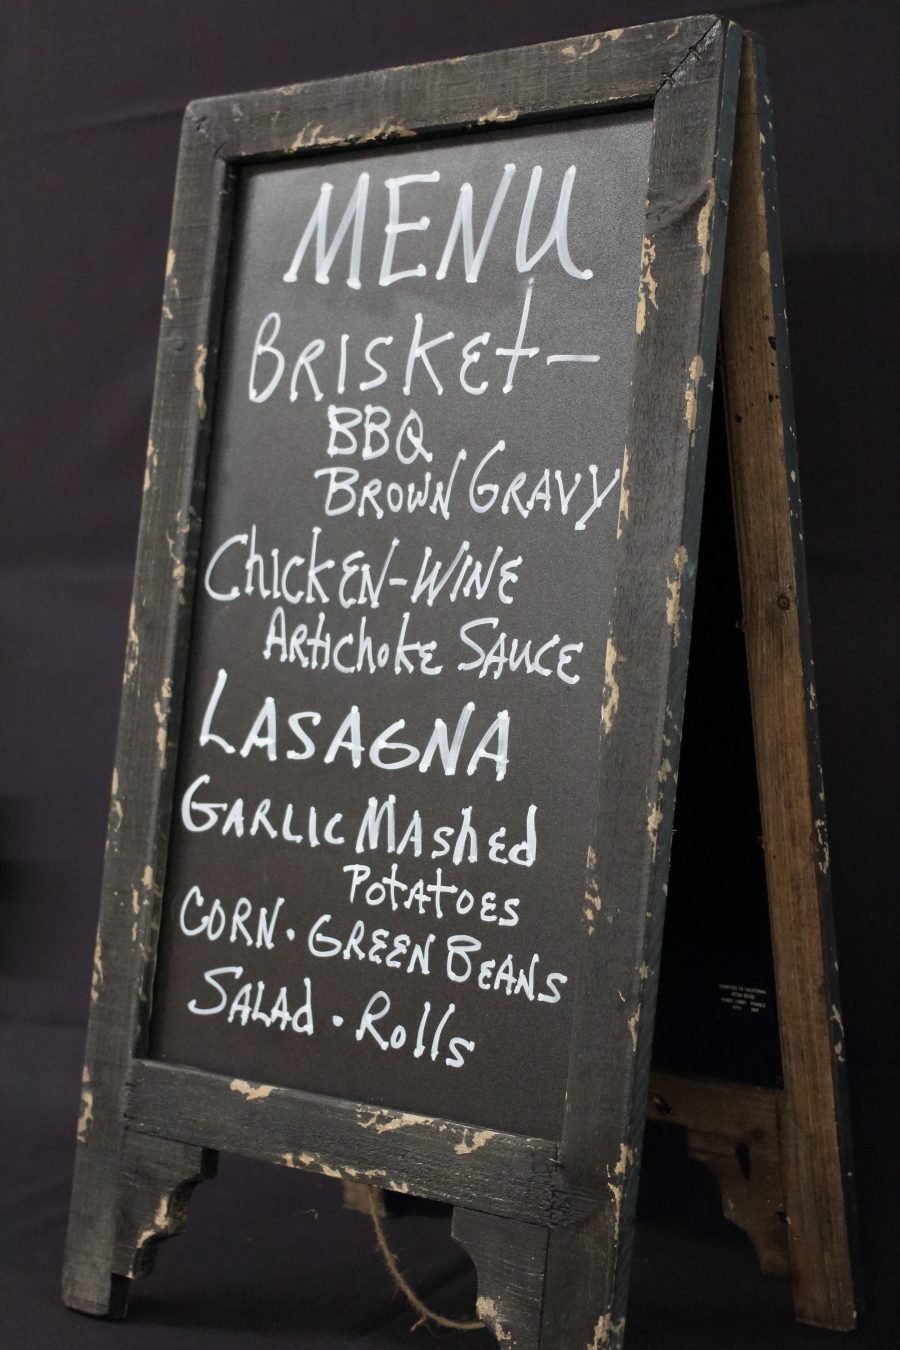 MENU
BRISKET—
BBQ
BROWN GRAVY
ChickEN-WINE
ARtichokE SAUCE
LASAGNA
GARLIC MAshed
POTATOES
CORN · GREEN BEANS
SALAd · Rolls